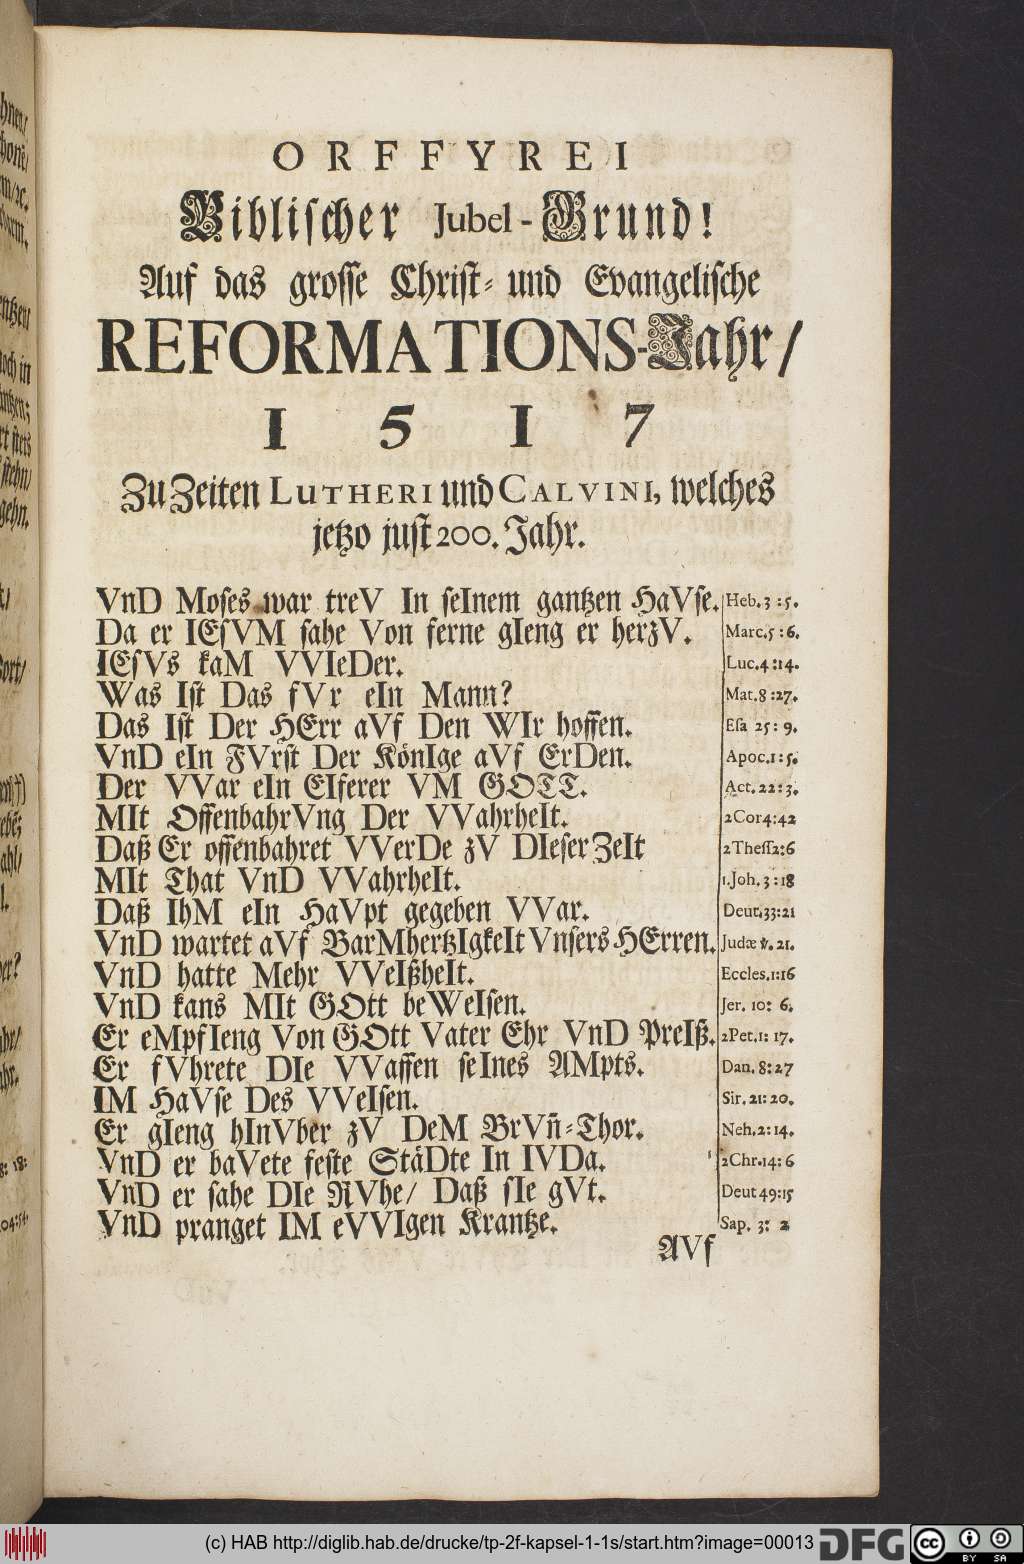 ORFFYREI
Biblischer Jubel-Grund!
Auf das grosse Christ- und Evangelische
REFORMATIONS-Jahr/
1517
Zu Zeiten LUTHERI und CALVINI, welches
jetzo just 200. Jahr.
VnD Moses war treV In seInem gantzen HaVse. Heb. 3:5.
Da er IEsVM sahe Von ferne gIeng er herzV. Marc. 5:6.
IEsVs kaM VVIeDer. Luc. 4:14.
Was Ist Das fVr eIn Mann? Mat. 8:27.
Das Ist Der HErr aVf Den WIr hoffen. Esa 25:9.
VnD eIn FVrst Der KönIge aVf ErDen. Apoc. 1:5.
Der VVar eIn EIferer VM GOTT. Act. 22:3.
MIt OffenbahrVng Der VVahrheIt. 2Cor4:42
Daß Er offenbahret VVerDe zV DIeser ZeIt 2Thess2:6
MIt That VnD VVahrheIt. 1. Joh. 3:18
Daß IhM eIn HaVpt gegeben VVar. Deut. 33:21
VnD wartet aVf BarMhertzIgkeIt Vnsers HErren. Judæ v. 21.
VnD hatte Mehr VVeIßheIt. Eccles. 1:16
VnD kans MIt GOtt beWeIsen. Jer. 10: 6.
Er eMpfIeng Von GOtt Vater Ehr VnD PreIß. 2Pet. 1: 17.
Er fVhrete DIe VVaffen seInes AMpts. Dan. 8:27
IM HaVse Des VVeIsen. Sir. 21:20.
Er gIeng hInVber zV DeM BrVn̄-Thor. Neh. 2:14.
VnD er baVete feste StäDte In IVDa. 2Chr. 14:6
VnD er sahe DIe RVhe/ Daß sIe gVt. Deut 49:15
VnD pranget IM eVVIgen Krantze. Sap. 3: 2
AVf
(c) HAB http://diglib.hab.de/drucke/tp-2f-kapsel-1-1s/start.htm?image=00013
DFG
cc BY SA